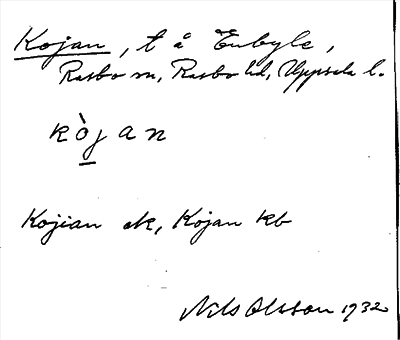 Kojan, t å Enbyle,
Rasbo sn, Rasbo hd, Uppsala l.
kòj a n
Kojian ek, Kojan kb
Nils Olsson 1932